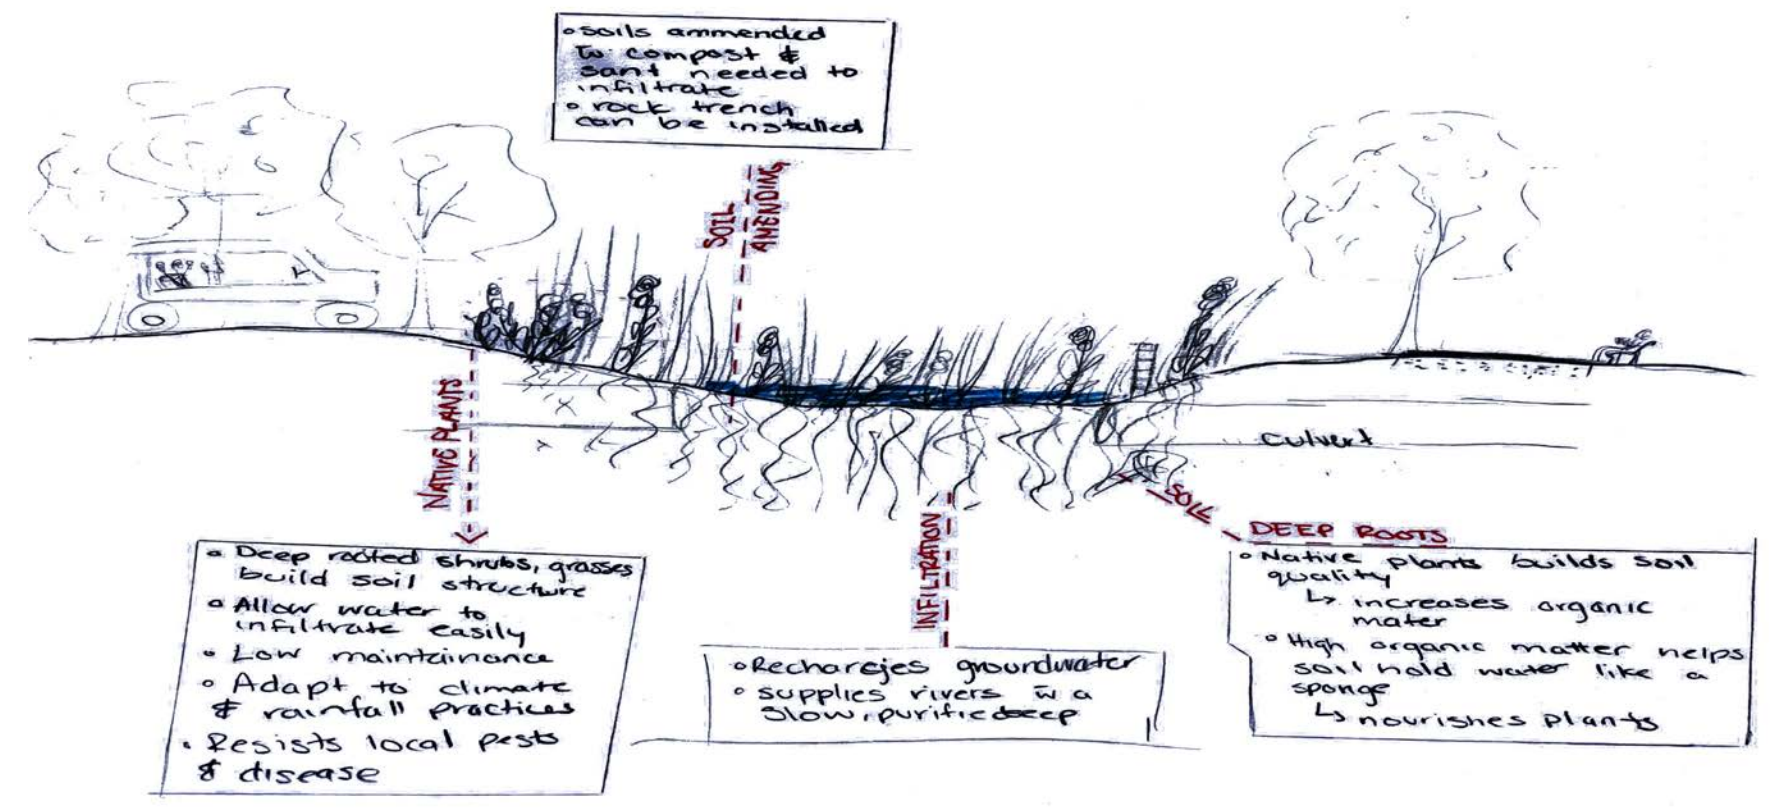 • soils ammended
w̄ compost &
sant needed to
infiltrate
• rock trench
can be installed
SOIL
AMENDING
NATIVE PLANTS
culvert
SOIL
DEEP ROOTS
INFILTRATION
• Deep rooted shrubs, grasses
build soil structure
• Allow water to
infiltrate easily
• Low maintainance
• Adapt to climate
& rainfall practices
• Resists local pests
& disease
• Recharejes groundwater
• supplies rivers w̄ a
slow, purified
• Native plants builds soil
quality
↳ increases organic
mater
• High organic matter helps
soil hold water like a
sponge
↳ nourishes plants